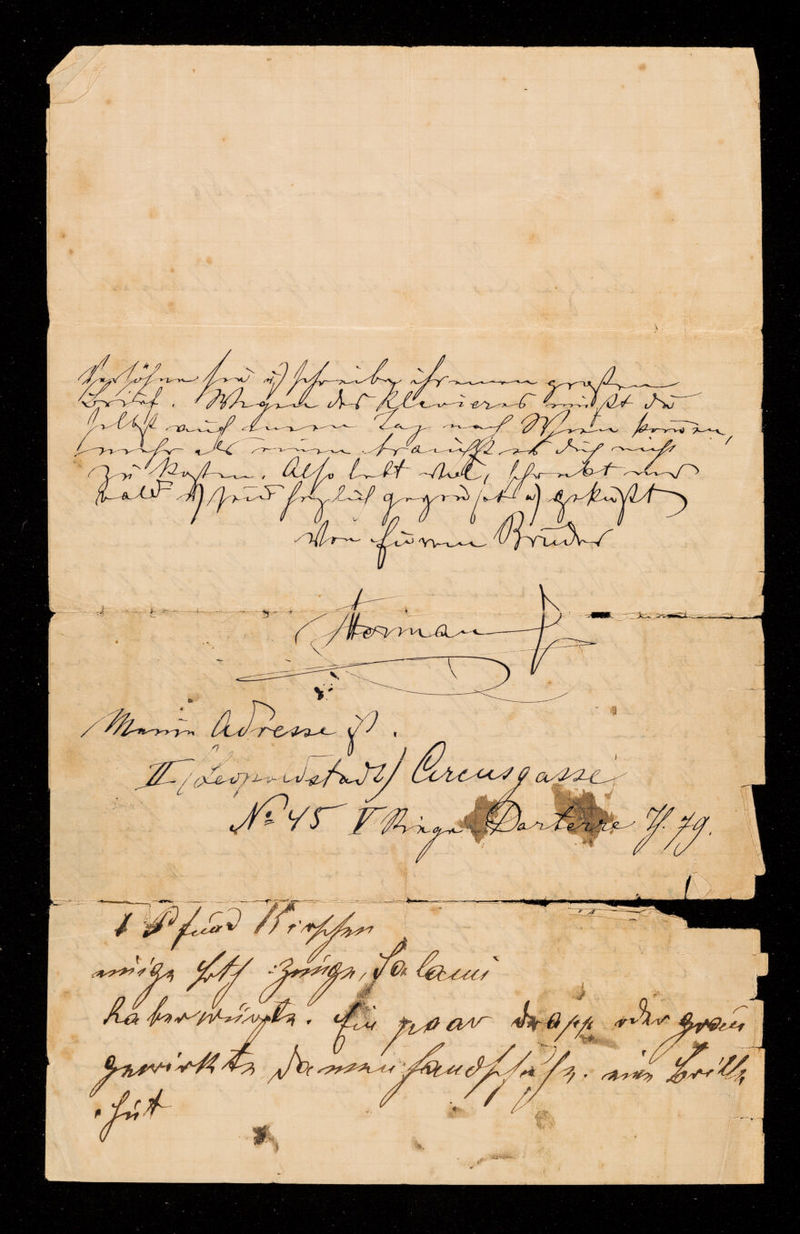 Versöhne sie u) schreibe ihr einen großen
Brief. Wegen des Klavieres mußt du
selbst auf einen Tag nach Wien kommen,
mehr als einen braucht es dich nicht
zu kosten. Also lebt wol, schreibt mir
bald u) seid herzlich gegrüßt u) geküßt
von Eurem Bruder
Herman
Meine Adresse ist.
II (Leopoldstadt) Circusgasse
No 45 V Stiege Parterre Th. 79.
1 Pfund Kirschen
einige Loth Zunge, Salami
Leberwürste. Ein paar drapp oder grau
gewirkte Damenhandschuhe. eine Brille
Hut